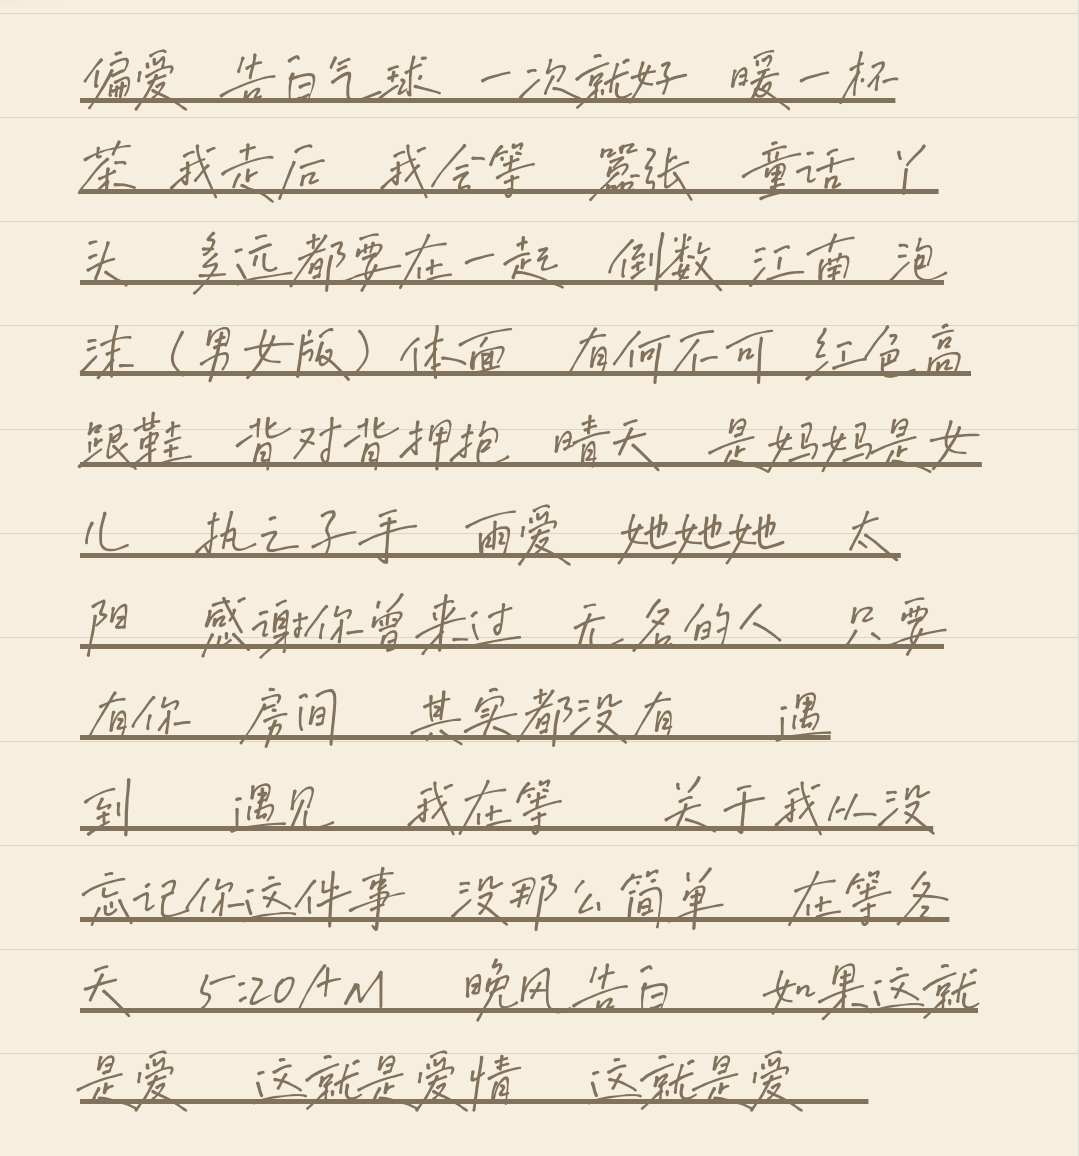 偏爱 告白气球 一次就好 暖一杯
茶 我走后 我会等 嚣张 童话 丫
头 多远都要在一起 倒数 江南 泡
沫（男女版）体面 有何不可 红色高
跟鞋 背对背拥抱 晴天 是妈妈是女
儿 执之子手 雨爱 她她她 太
阳 感谢你曾来过 无名的人 只要
有你 房间 其实都没有 遇
到 遇见 我在等 关于我从没
忘记你这件事 没那么简单 在等冬
天 5:20AM 晚风告白 如果这就
是爱 这就是爱情 这就是爱